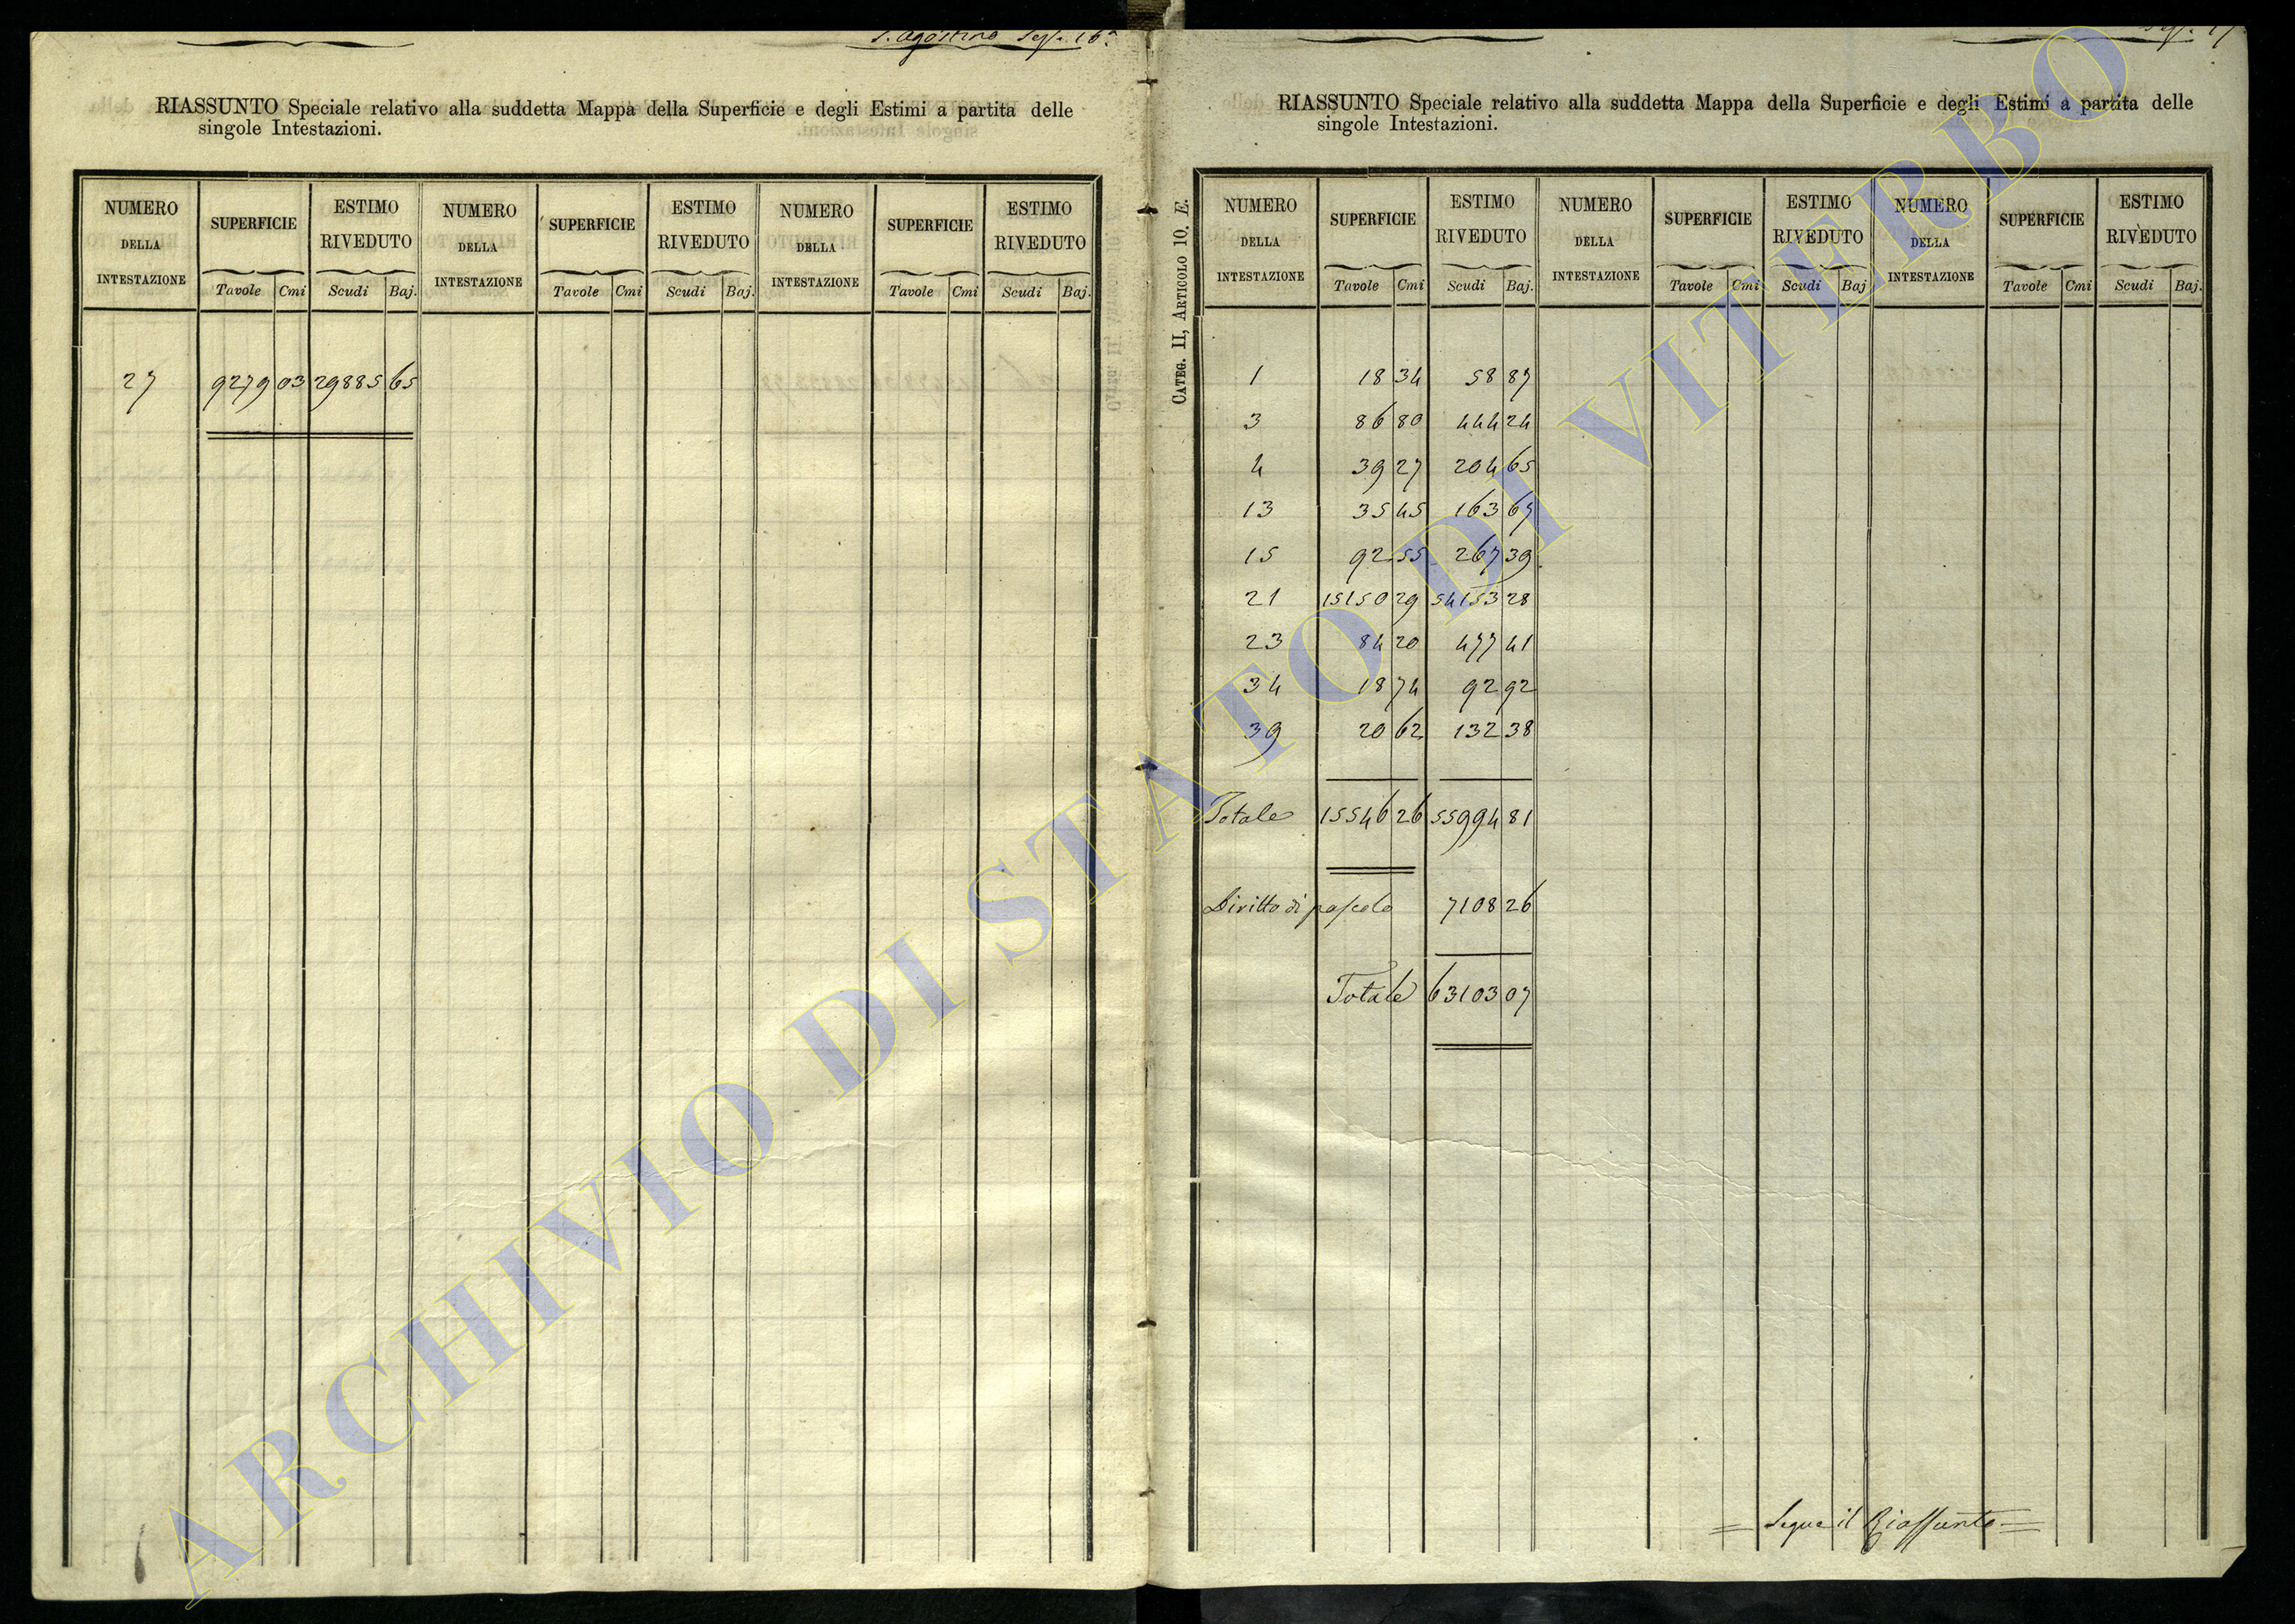 S. Agostino Sez. 16ª
RIASSUNTO Speciale relativo alla suddetta Mappa della Superficie e degli Estimi a partita delle
singole Intestazioni.
NUMERO DELLA INTESTAZIONE SUPERFICIE Tavole Cmi ESTIMO RIVEDUTO Scudi Baj. NUMERO DELLA INTESTAZIONE SUPERFICIE Tavole Cmi ESTIMO RIVEDUTO Scudi Baj. NUMERO DELLA INTESTAZIONE SUPERFICIE Tavole Cmi ESTIMO RIVEDUTO Scudi Baj.
27 9279 03 29885 65
RIASSUNTO Speciale relativo alla suddetta Mappa della Superficie e degli Estimi a partita delle
singole Intestazioni.
CATEG. II, ARTICOLO 10. E.
NUMERO DELLA INTESTAZIONE SUPERFICIE Tavole Cmi ESTIMO RIVEDUTO Scudi Baj. NUMERO DELLA INTESTAZIONE SUPERFICIE Tavole Cmi ESTIMO RIVEDUTO Scudi Baj NUMERO DELLA INTESTAZIONE SUPERFICIE Tavole Cmi ESTIMO RIVEDUTO Scudi Baj.
1 18 34 58 87
3 86 80 444 24
4 39 27 204 65
13 35 45 163 67
15 92 55 267 39
21 15150 29 54153 28
23 84 20 477 41
34 18 74 92 92
39 20 62 132 38
Totale 15546 26 55994 81
Diritto di pascolo 7108 26
Totale 63103 07
= Segue il Riassunto =
ARCHIVIO DI STATO DI VITERBO